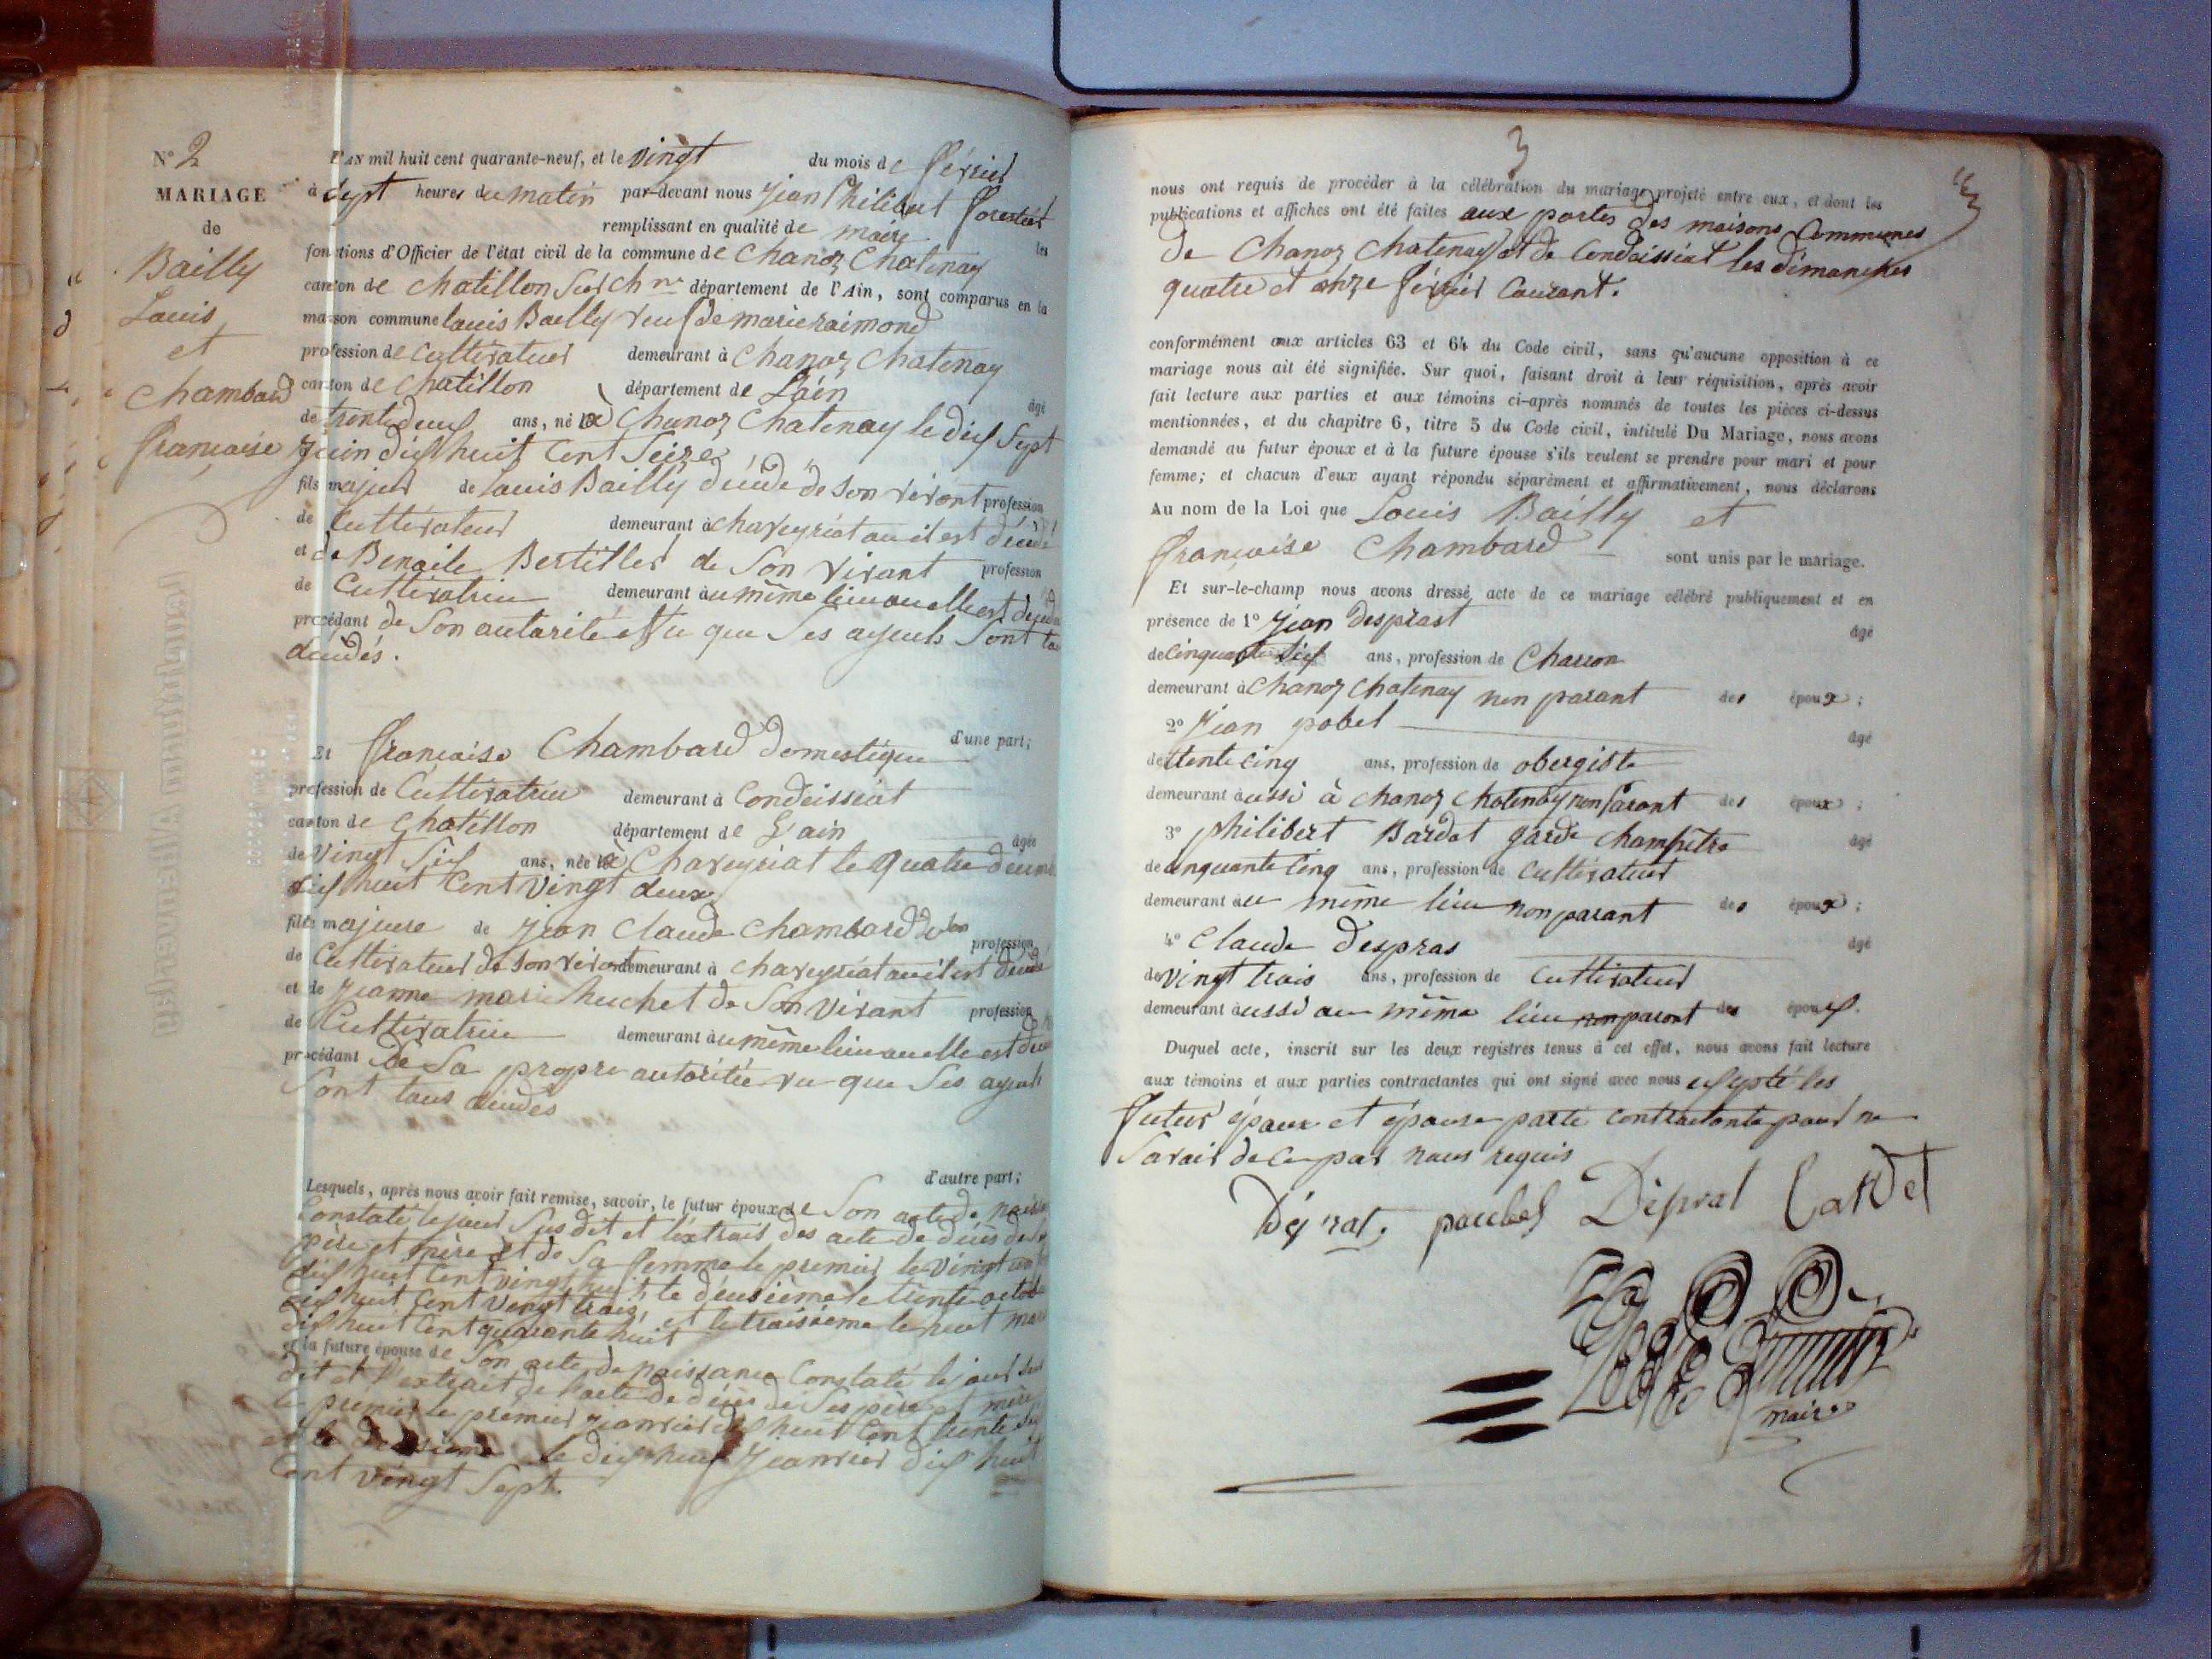 N° 2
MARIAGE
de
Bailly
Louis
et
Chambard
françoise
L'AN mil huit cent quarante-neuf, et le vingt du mois de février
à sept heures du matin par-devant nous Jean Philibert forestier
remplissant en qualité de maire les
fonctions d'Officier de l'état civil de la commune de Chanoz Chatenay
canton de chatillon sur Chne département de l'Ain, sont comparus en la
maison commune louis Bailly veuf de marie raimond
profession de cultivateur demeurant à Chanoz Chatenay
canton de Chatillon département de Lain âgé
de trente deux ans, né à Chanoz Chatenay le dix sept
juin dix huit Cent Seize
fils majeur de Louis Bailly décédé de son vivant profession
de Cultivateur demeurant à chaveyriat ou il est décédé
et de Benoite Bertillier de Son vivant profession
de Cultivatrice demeurant au même lieu ou elle est
procédant de Son autorité vu que Ses ayeuls Sont
décédés.
d'une part;
Et françoise Chambard domestique
profession de Cultivatrice demeurant à Condeissiat
canton de Chatillon département de L'ain âgée
de vingt Six ans, née à Chaveyriat le quatre
dix huit Cent vingt deux
fille majeure de Jean Claude Chambard profession
de Cultivateur de son vivant demeurant à chaveyriat ou il est décédé
et de Jeanne marie huchet de Son vivant profession
de Cultivatrice demeurant au même lieu ou elle est
procédant de Sa propre autoritée vu que Ses ayeuls
Sont tous décédés
d'autre part;
Lesquels, après nous avoir fait remise, savoir, le futur époux de Son acte de
Constaté le jour Sus dit et l'extrait des acte de décès de
père et mère et de Sa femme le premier le vingt
dix huit Cent vingt huit, le deusième le trente
dix huit Cent vingt trois, et le troisième le huit
dix huit Cent quarante huit
et la future épouse de Son acte de naissance Constaté le jour
dit et l'extrait de l'acte de décès de Ses père et mère
le premier le premier janvier dix huit Cent trente
et le deusième le dix huit Jeanvier dix huit
Cent vingt Sept.
3
nous ont requis de procéder à la célébration du mariage projeté entre eux, et dont les
publications et affiches ont été faites aux portes des maisons Communes
de Chanoz Chatenay et de Condeissiat les dimanches
quatre et onze février Courant.
conformément aux articles 63 et 64 du Code civil, sans qu'aucune opposition à ce
mariage nous ait été signifiée. Sur quoi, faisant droit à leur réquisition, après avoir
fait lecture aux parties et aux témoins ci-après nommés de toutes les pièces ci-dessus
mentionnées, et du chapitre 6, titre 5 du Code civil, intitulé Du Mariage, nous avons
demandé au futur époux et à la future épouse s'ils veulent se prendre pour mari et pour
femme; et chacun d'eux ayant répondu séparément et affirmativement, nous déclarons
Au nom de la Loi que Louis Bailly et
françoise Chambard sont unis par le mariage.
Et sur-le-champ nous avons dressé acte de ce mariage célébré publiquement et en
présence de 1° Jean Desprast âgé
de cinquante six ans, profession de Charron
demeurant à Chanoz Chatenay non parant des époux;
2° Jean pobel âgé
de trente cinq ans, profession de obergiste
demeurant aussi à chanoz chatenay non parant des époux;
3° philibert Bardet garde champêtre âgé
de cinquante cinq ans, profession de cultivateur
demeurant au même lieu non parant des époux;
4° Claude Despras âgé
de vingt trois ans, profession de cultivateur
demeurant aussi au même lieu non parant des époux.
Duquel acte, inscrit sur les deux registres tenus à cet effet, nous avons fait lecture
aux témoins et aux parties contractantes qui ont signé avec nous exsepté les
futur époux et épouse partie contractante pour ne
Savoir de ce par nous requis
maire